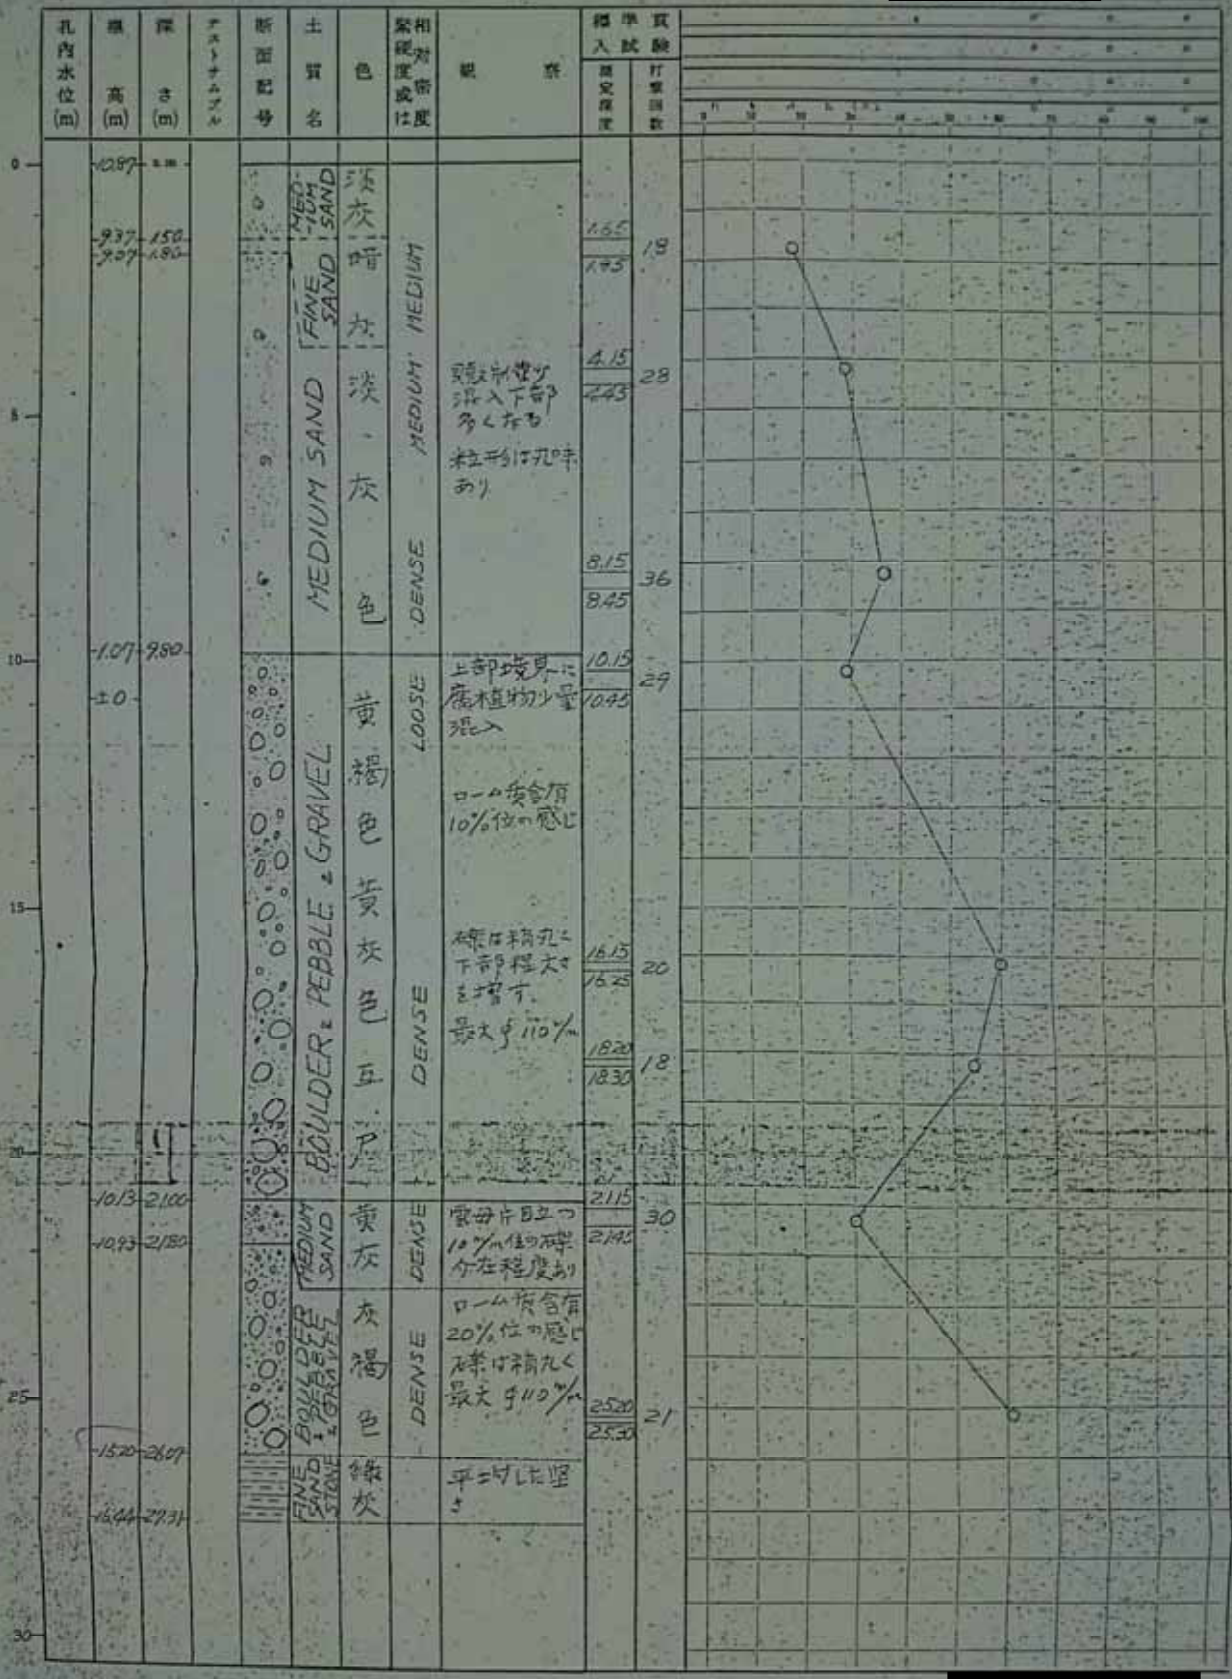 孔内水位(m)
標高(m)
深さ(m)
断面記号
土質名
色
相対密度
緊硬度或は
観察
標準貫
入試験
測定深度
打撃回数
0 10 20 30 40 50 60 70 80 90 100
0
5
10
15
20
25
30
10.87
9.37 1.50
9.07 1.80
1.07 9.80
±0
-10.13 21.00
-10.93 21.80
-15.20 26.07
-16.44 27.31
MED-
-IUM
SAND
FINE
SAND
MEDIUM SAND
BOULDER & PEBBLE & GRAVEL
MEDIUM
SAND
BOULDER
& PEBBLE
& GRAVEL
FINE
SAND
STONE
淡灰
暗灰
淡灰色
黄褐色
黄灰色
互
黄灰
灰褐色
緑灰
MEDIUM
MEDIUM
DENSE
LOOSE
DENSE
DENSE
DENSE
混入下部
多くなる
粒形は丸味
あり
上部境界に
腐植物少量
混入
ローム質含有
10%位の感じ
礫は稍丸く
下部程大き
を増す.
最大φ110m/m
雲母片目立つ
10m/m位の礫
介在程度あり
ローム質含有
20%位の感じ
礫は稍丸く
最大φ110m/m
した堅
さ
1.65
1.95
18
4.15
4.45
28
8.15
8.45
36
10.15
10.45
29
16.15
16.25
20
18.20
18.30
18
21.15
21.45
30
25.20
25.30
21